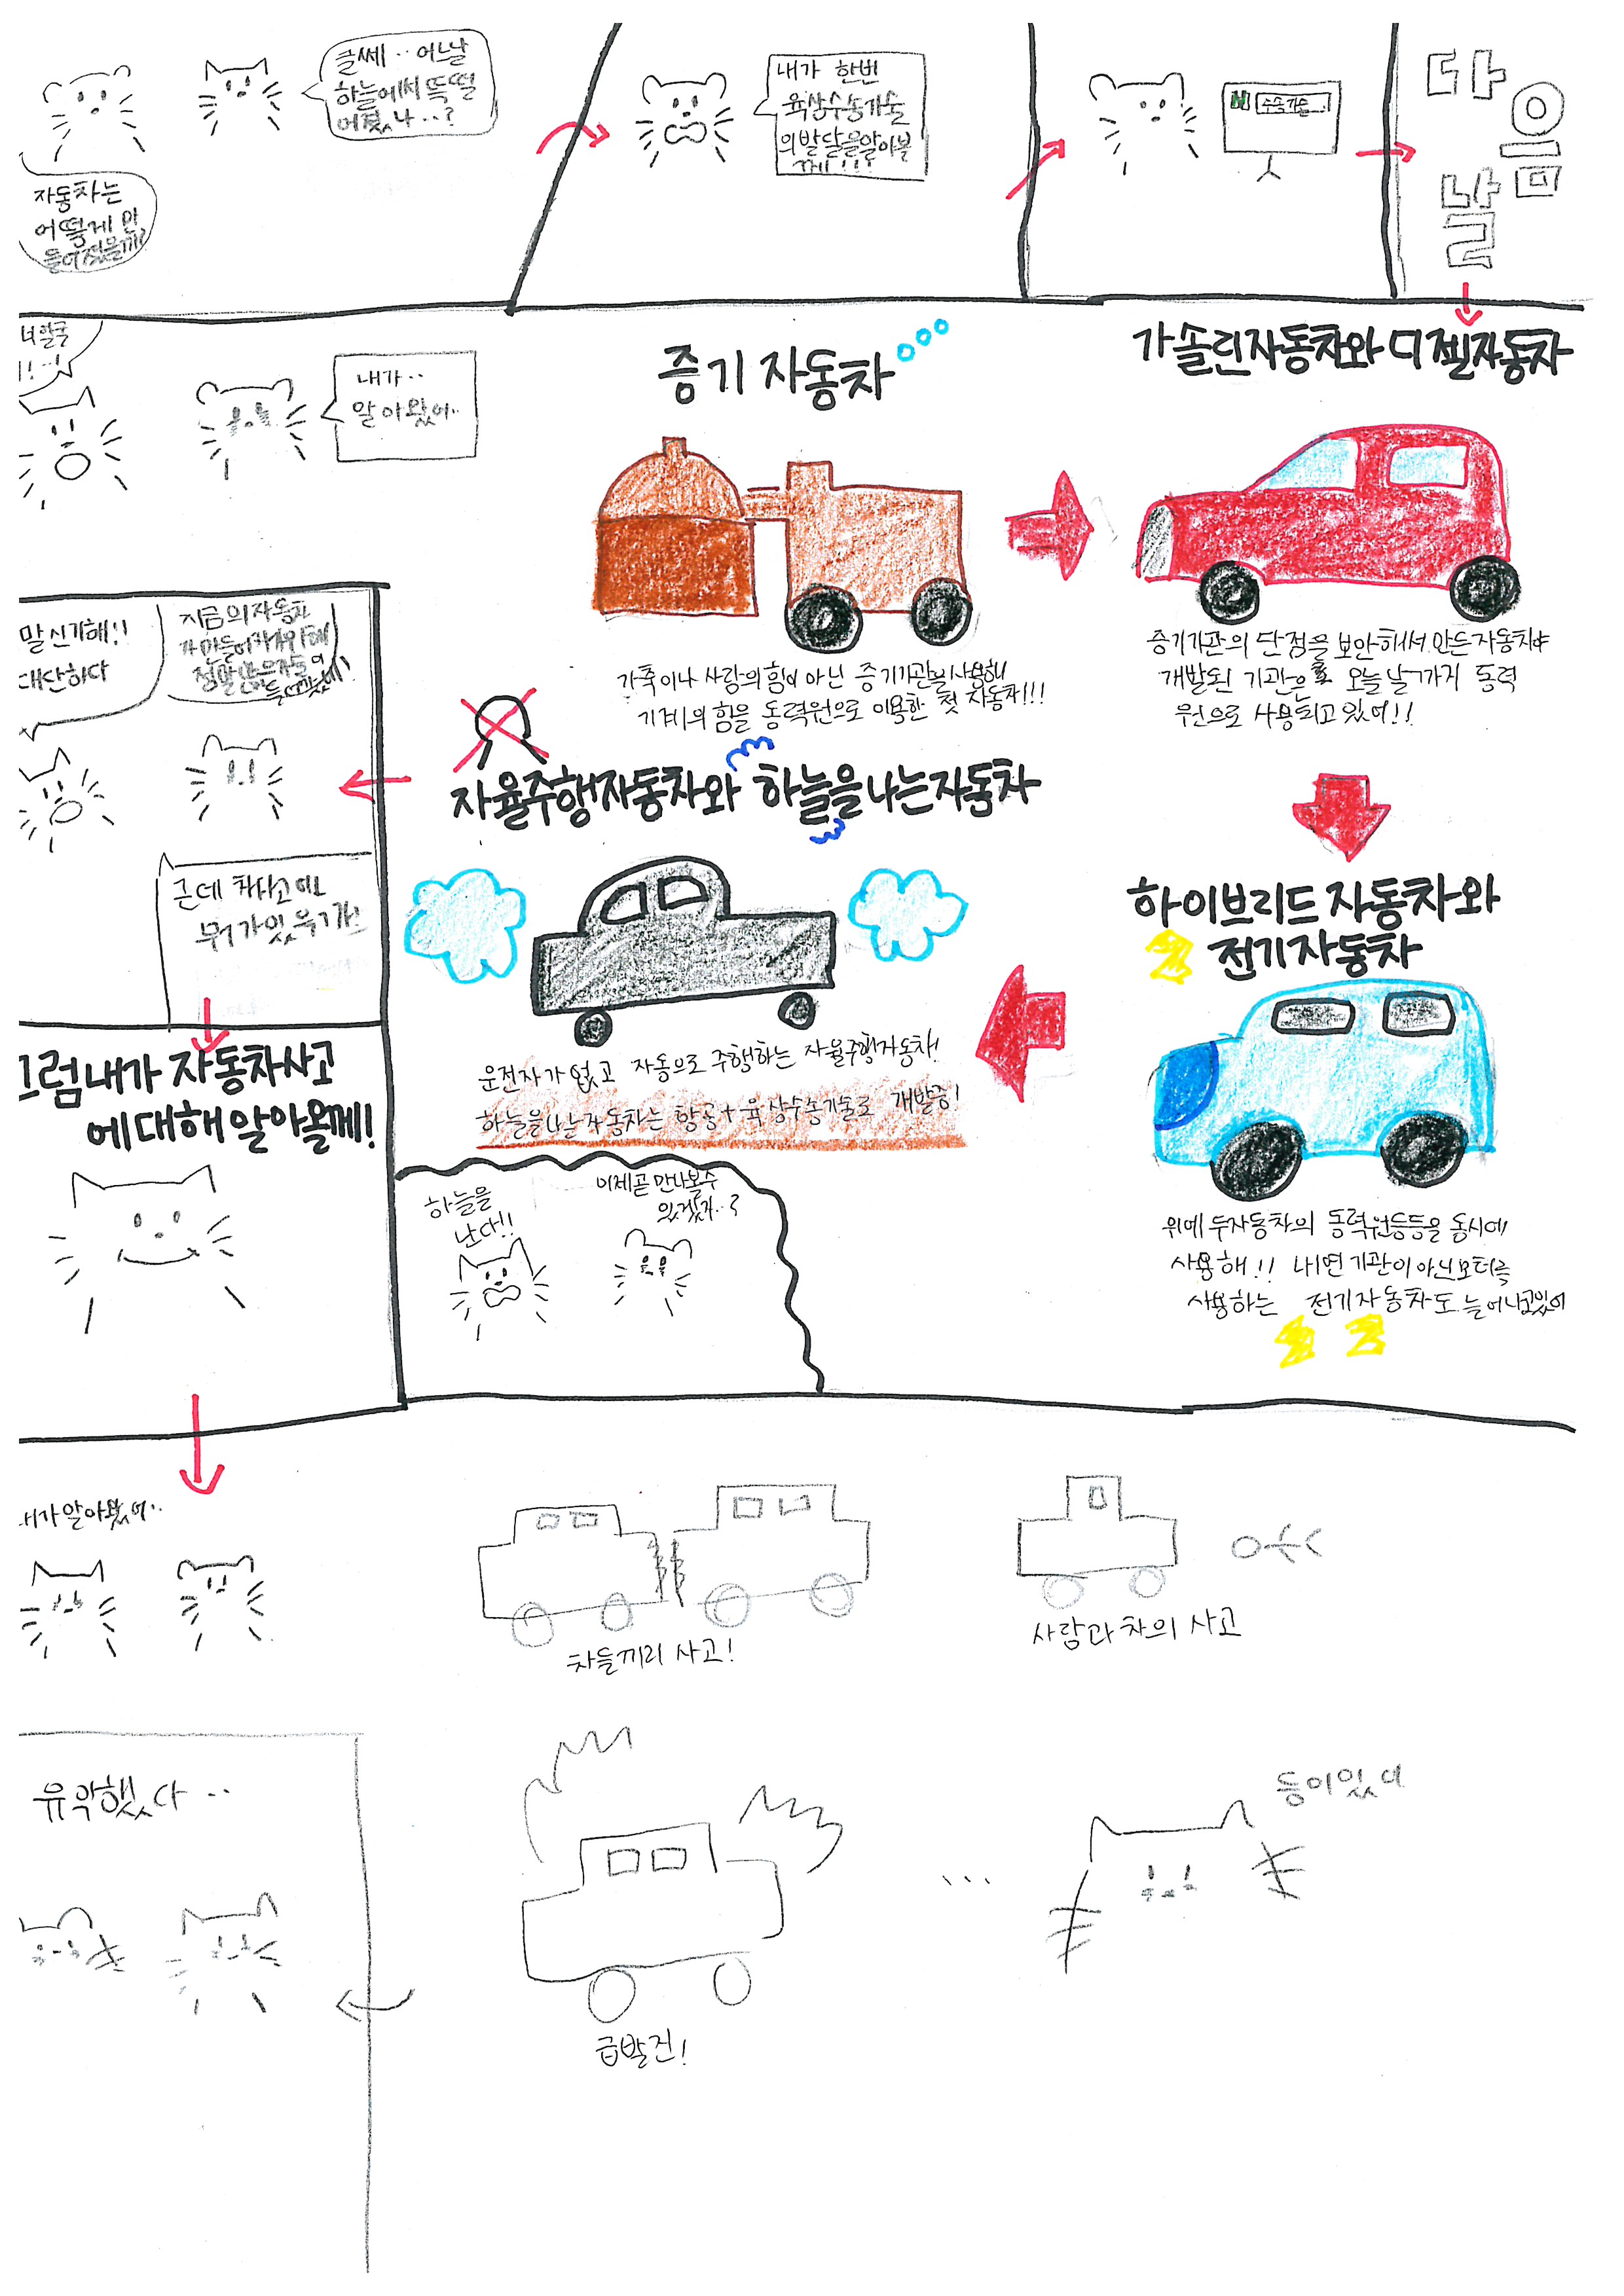 자동차는
어떻게 만
들어졌을까?
글쎄.. 어느날
하늘에서 뚝떨
어졌나..?
내가 한번
육상수송기술
의발달을알아볼
께!!!
N
다음
날
내가..
알아왔어..
증기 자동차
가축이나 사람의 힘이 아닌 증기기관을 사용해
기계의 힘을 동력원으로 이용한 첫 자동차!!!
가솔린자동차와 디젤자동차
증기기관의 단점을 보안해서 만든자동차야
개발된 기관은 오늘날까지 동력
원으로 사용되고있어!!
하이브리드 자동차와
전기자동차
위에 두자동차의 동력원등등을 동시에
사용해!! 내연기관이 아닌모터를
사용하는 전기자동차도 늘어나고있어
자율주행자동차와 하늘을나는자동차
운전자가 없고 자동으로 주행하는 자율주행자동차!
하늘을나는자동차는 항공+육상수송기술로 개발중!
하늘을
난다!!
이제곧만나볼수
있겠지..?
말신기해!!
대단하다
지금의자동차
가만들어지기위해
정말많은자들의
근데 차사고에는
뭐가있을까!
그럼내가 자동차사고
에대해알아올께!
내가알아왔어..
차들끼리 사고!
사람과차의 사고
급발진!
...
등이있어
유악했다..